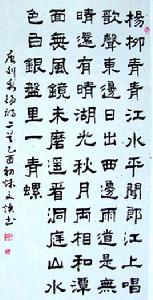 楊柳青青江水平聞郎江上唱
歌聲東邊日出西邊雨道是無
晴還有晴湖光秋月兩相和潭
面無風鏡未磨遥看洞庭山水
色白銀盤里一青螺
唐刘禹锡诗二首乙酉初秋文书